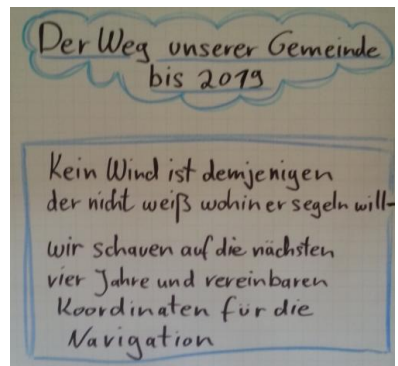 Der Weg unserer Gemeinde
bis 2019
Kein Wind ist demjenigen
der nicht weiß wohin er segeln will-
wir schauen auf die nächsten
vier Jahre und vereinbaren
Koordinaten für die
Navigation